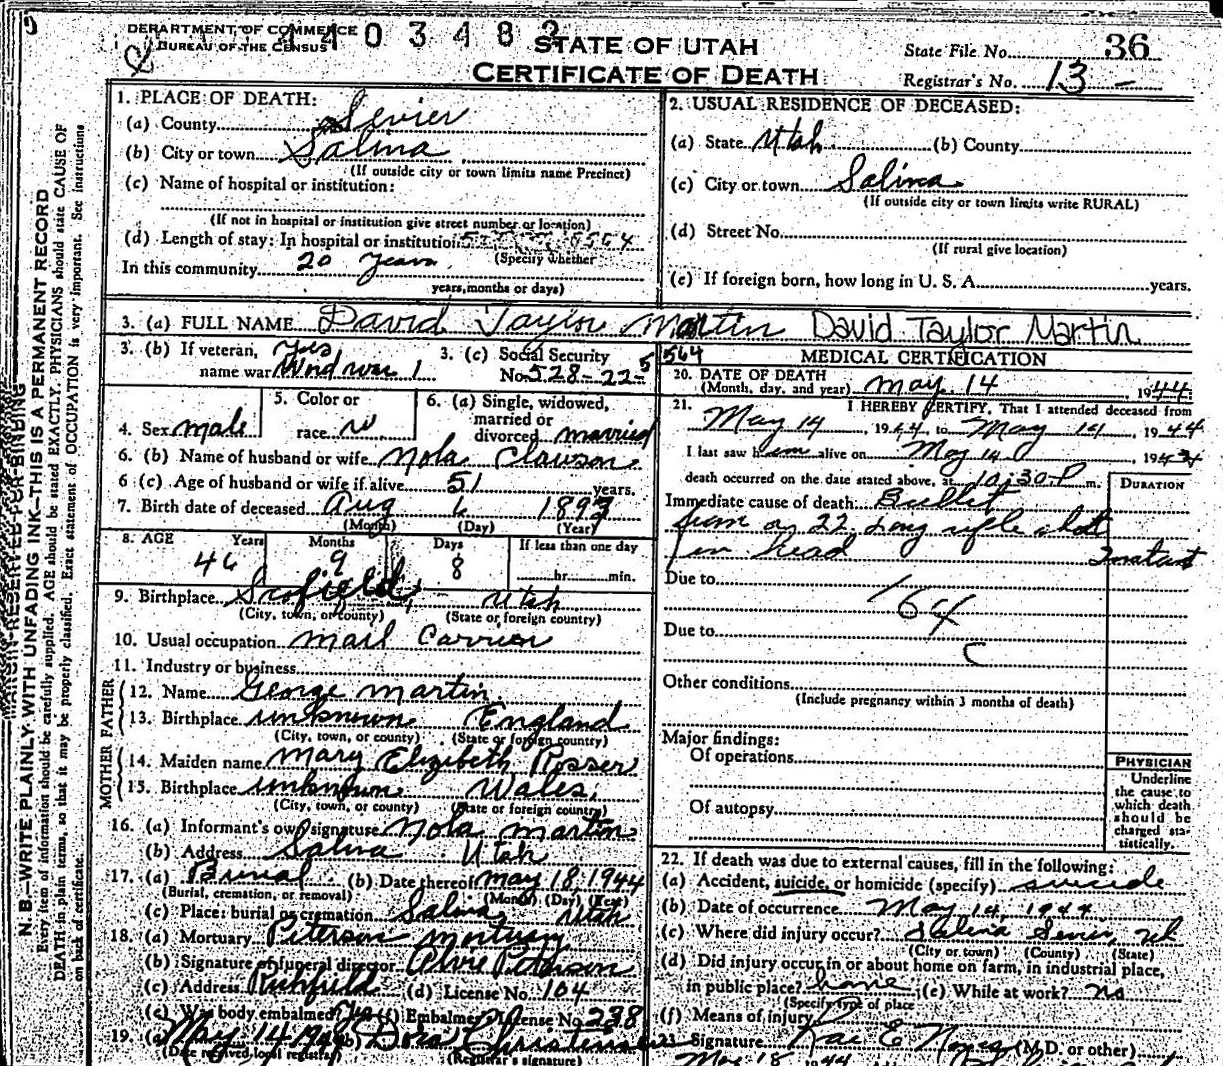 DEPARTMENT OF COMMERCE
BUREAU OF THE CENSUS
403482
STATE OF UTAH
CERTIFICATE OF DEATH
State File No. 36
Registrar's No. 13 -
N. B.—WRITE PLAINLY WITH UNFADING INK—THIS IS A PERMANENT RECORD
Every item of information should be carefully supplied. AGE should be stated EXACTLY. PHYSICIANS should state CAUSE OF
DEATH in plain terms, so that it may be properly classified. Exact statement of OCCUPATION is very important. See instructions
on back of certificate.
1. PLACE OF DEATH:
(a) County Sevier
(b) City or town Salina
(If outside city or town limits name Precinct)
(c) Name of hospital or institution:
(If not in hospital or institution give street number or location)
(d) Length of stay: In hospital or institution
(Specify whether
In this community 20 years
years, months or days)
2. USUAL RESIDENCE OF DECEASED:
(a) State Utah (b) County
(c) City or town Salina
(If outside city or town limits write RURAL)
(d) Street No.
(If rural give location)
(e) If foreign born, how long in U. S. A. years.
3. (a) FULL NAME David Taylor Martin David Taylor Martin
3. (b) If veteran, yes
name war World war 1
3. (c) Social Security
No. 528-22-5
564
4. Sex male
5. Color or
race w
6. (a) Single, widowed,
married or
divorced married
6. (b) Name of husband or wife Nola Clawson
6 (c) Age of husband or wife if alive 51 years.
7. Birth date of deceased Aug 6 1897
(Month) (Day) (Year)
8. AGE Years Months Days If less than one day
46 9 8 hr. min.
9. Birthplace Scofield, Utah
(City, town, or county) (State or foreign country)
10. Usual occupation Mail Carrier
11. Industry or business
FATHER
12. Name George Martin
13. Birthplace unknown England
(City, town, or county) (State or foreign country)
MOTHER
14. Maiden name Mary Elizibeth Rosser
15. Birthplace unknown Wales
(City, town, or county) (State or foreign country)
16. (a) Informant's own signature Nola Martin
(b) Address Salina Utah
17. (a) Burial (b) Date thereof May 18, 1944
(Burial, cremation, or removal) (Month) (Day) (Year)
(c) Place: burial or cremation Salina, Utah
18. (a) Mortuary Peterson Mortuary
(b) Signature of funeral director Alvie Peterson
(c) Address Richfield (d) License No. 104
(e) Was body embalmed? Yes (f) Embalmer's License No. 238
19. (a) May 14 1944 Dora Christensen
(Date received local registrar) (Registrar's signature)
MEDICAL CERTIFICATION
20. DATE OF DEATH
(Month, day, and year) May 14, 1944
21. I HEREBY CERTIFY, That I attended deceased from
May 14, 1944, to May 14, 1944
I last saw him alive on May 14 1944
death occurred on the date stated above, at 10:30 P m.
DURATION
Immediate cause of death Bullit
from a 22 Long rifle shot
in head Instant
Due to
164
Due to
C
Other conditions
(Include pregnancy within 3 months of death)
Major findings:
Of operations
Of autopsy
PHYSICIAN
Underline
the cause to
which death
should be
charged sta-
tistically.
22. If death was due to external causes, fill in the following:
(a) Accident, suicide, or homicide (specify) suicide
(b) Date of occurrence May 14, 1944
(c) Where did injury occur? Salina Sevier, Ut
(City or town) (County) (State)
(d) Did injury occur in or about home on farm, in industrial place,
in public place? home (e) While at work? no
(Specify type of place
(f) Means of injury
Signature Rae E (M.D. or other)
May 18 1944